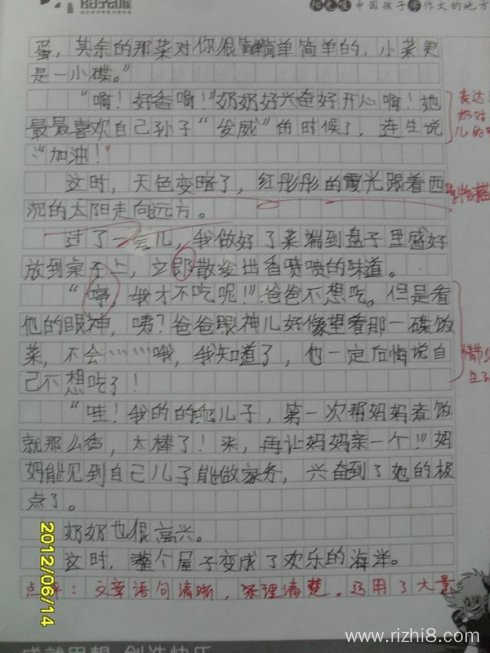 阳光喔 中国孩子学作文的地方
蛋，其余的那菜对你很简单简单的，小菜更
是一小碟。”
“啊！好香啊！”奶奶好兴奋好开心啊！她
最最喜欢自己孙子“发威”的时候了，连连说
“加油！”
表达
这时，天色变暗了，红彤彤的霞光跟着西
沉的太阳走向远方。
过了一会儿，我做好了菜端到盘子里盛好
放到桌子上，立即散发出香喷喷的味道。
“哼，我才不吃呢！”爸爸不想吃，但是看
他的眼神，咦？爸爸眼神儿好像望着那一碟饭
菜，不会……哦，我知道了，他一定后悔说自
己不想吃了！
“哇！我的的乖儿子，第一次帮妈妈煮饭
就那么香，太棒了！来，再让妈妈亲一个！”妈
妈能见到自己儿子能做家务，兴奋到了她的极
点了。
奶奶也很高兴。
这时，整个屋子变成了欢乐的海洋。
点评：文章语句清晰，条理清楚，巧用了大量
2012/06/14
成就思想 创造快乐
www.rizhi8.com